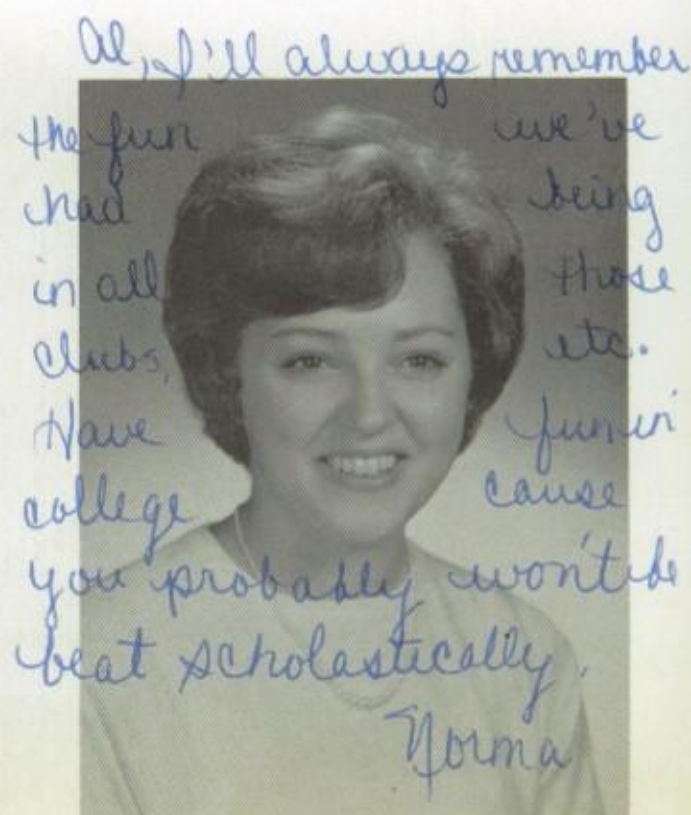 Al, I'll always remember
the fun we've
had being
in all those
clubs, etc.
Have fun in
college cause
you probably won't be
beat scholastically.
Norma